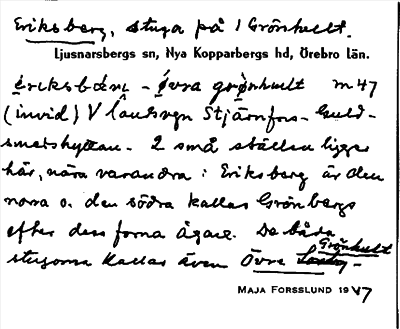 Eriksberg, stuga på 1 Grönhult.
Ljusnarsbergs sn, Nya Kopparbergs hd, Örebro län.
ériksbærj - övra grönhult m 47
(invid) V landsvgn Stjärnfors - Guld-
smetshyttan. - 2 små ställen ligger
här, nära varandra: Eriksberg är den
norra o. den södra kallas Grönbergs
efter dess forna ägare. De båda
Grönhult
stugorna kallas även Övre -
MAJA FORSSLUND 1947